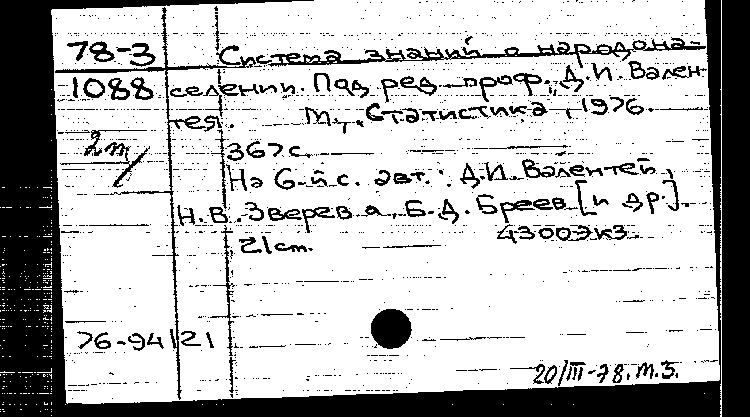 78-3 Система знаний о народона-
1088 селении. Под ред. проф. Д.И. Вален-
тея. М., Статистика, 1976.
2т/ 367с.
На 6-й с. авт.: Д.И. Валентей,
Н.В. Зверева, Б.Д. Бреев [и др.].
21ст. 4300экз.
76-94121
20/III-78. М.З.